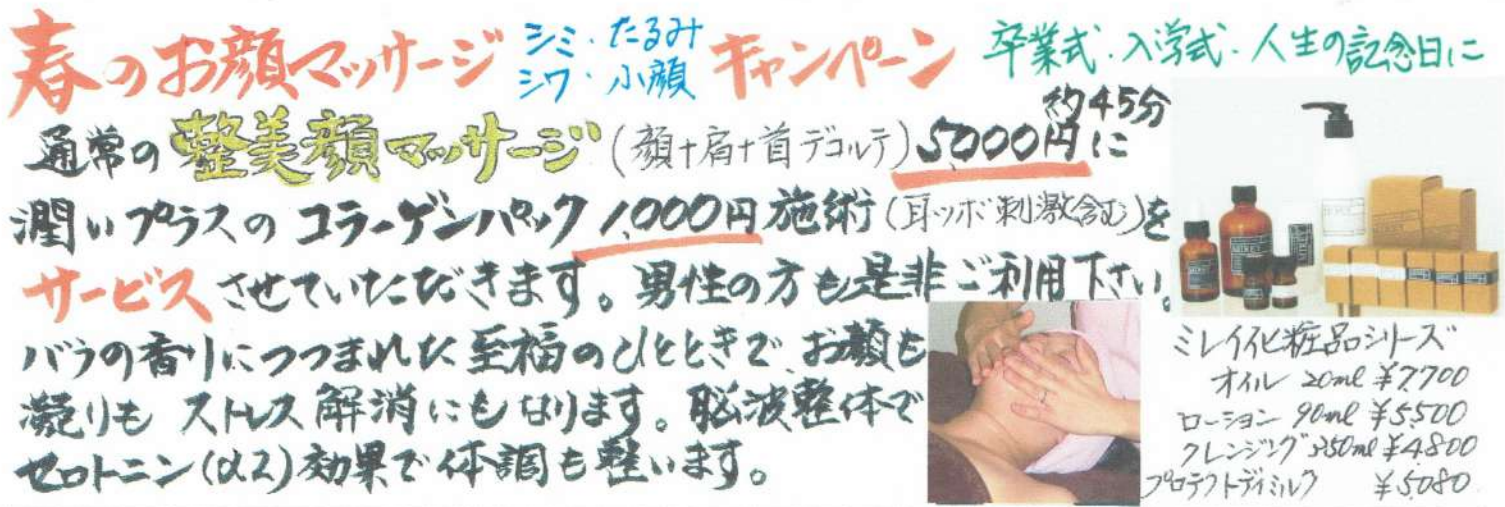 春のお顔マッサージ シミ・たるみ シワ・小顔 キャンペーン 卒業式・入学式・人生の記念日に
約45分
通常の 整美顔マッサージ(顔+肩+首デコルテ)5,000円に
潤いプラスの コラーゲンパック 1,000円 施術(耳ツボ刺激含む)を
サービスさせていただきます。男性の方も是非ご利用下さい。
バラの香りにつつまれた至福のひとときで、お顔も
凝りも ストレス解消にもなります。脳波整体で
セロトニン(α2)効果で体調も整います。
ミレイ化粧品シリーズ
オイル 20ml ¥7700
ローション 90ml ¥5,500
クレンジング 350ml ¥4,800
プロテクトデイミルク ¥5,080